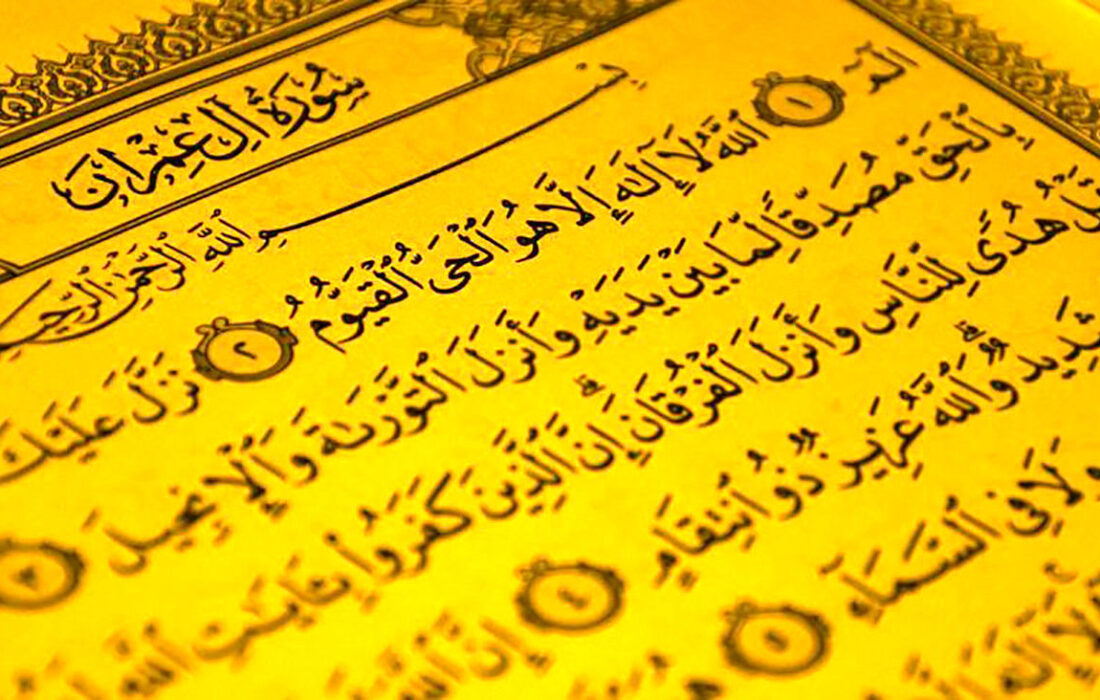 سُورَةُ آلِ عِمۡرَان
بِسۡمِ ٱللَّهِ ٱلرَّحۡمَٰنِ ٱلرَّحِيمِ
الٓمٓ ١ ٱللَّهُ لَآ إِلَٰهَ إِلَّا هُوَ ٱلۡحَيُّ ٱلۡقَيُّومُ ٢ نَزَّلَ عَلَيۡكَ
بِٱلۡحَقِّ مُصَدِّقٗا لِّمَا بَيۡنَ يَدَيۡهِ وَأَنزَلَ ٱلتَّوۡرَىٰةَ وَٱلۡإِنجِيلَ ٣
هُدٗى لِّلنَّاسِ وَأَنزَلَ ٱلۡفُرۡقَانَۗ إِنَّ ٱلَّذِينَ كَفَرُواْ بِـَٔايَٰتِ ٱللَّهِ
شَدِيدٞۗ وَٱللَّهُ عَزِيزٞ ذُو ٱنتِقَامٍ ٤ إِنَّ ٱللَّهَ
وَلَا فِي ٱلسَّمَآءِ ٥
لَآ إِلَٰهَ